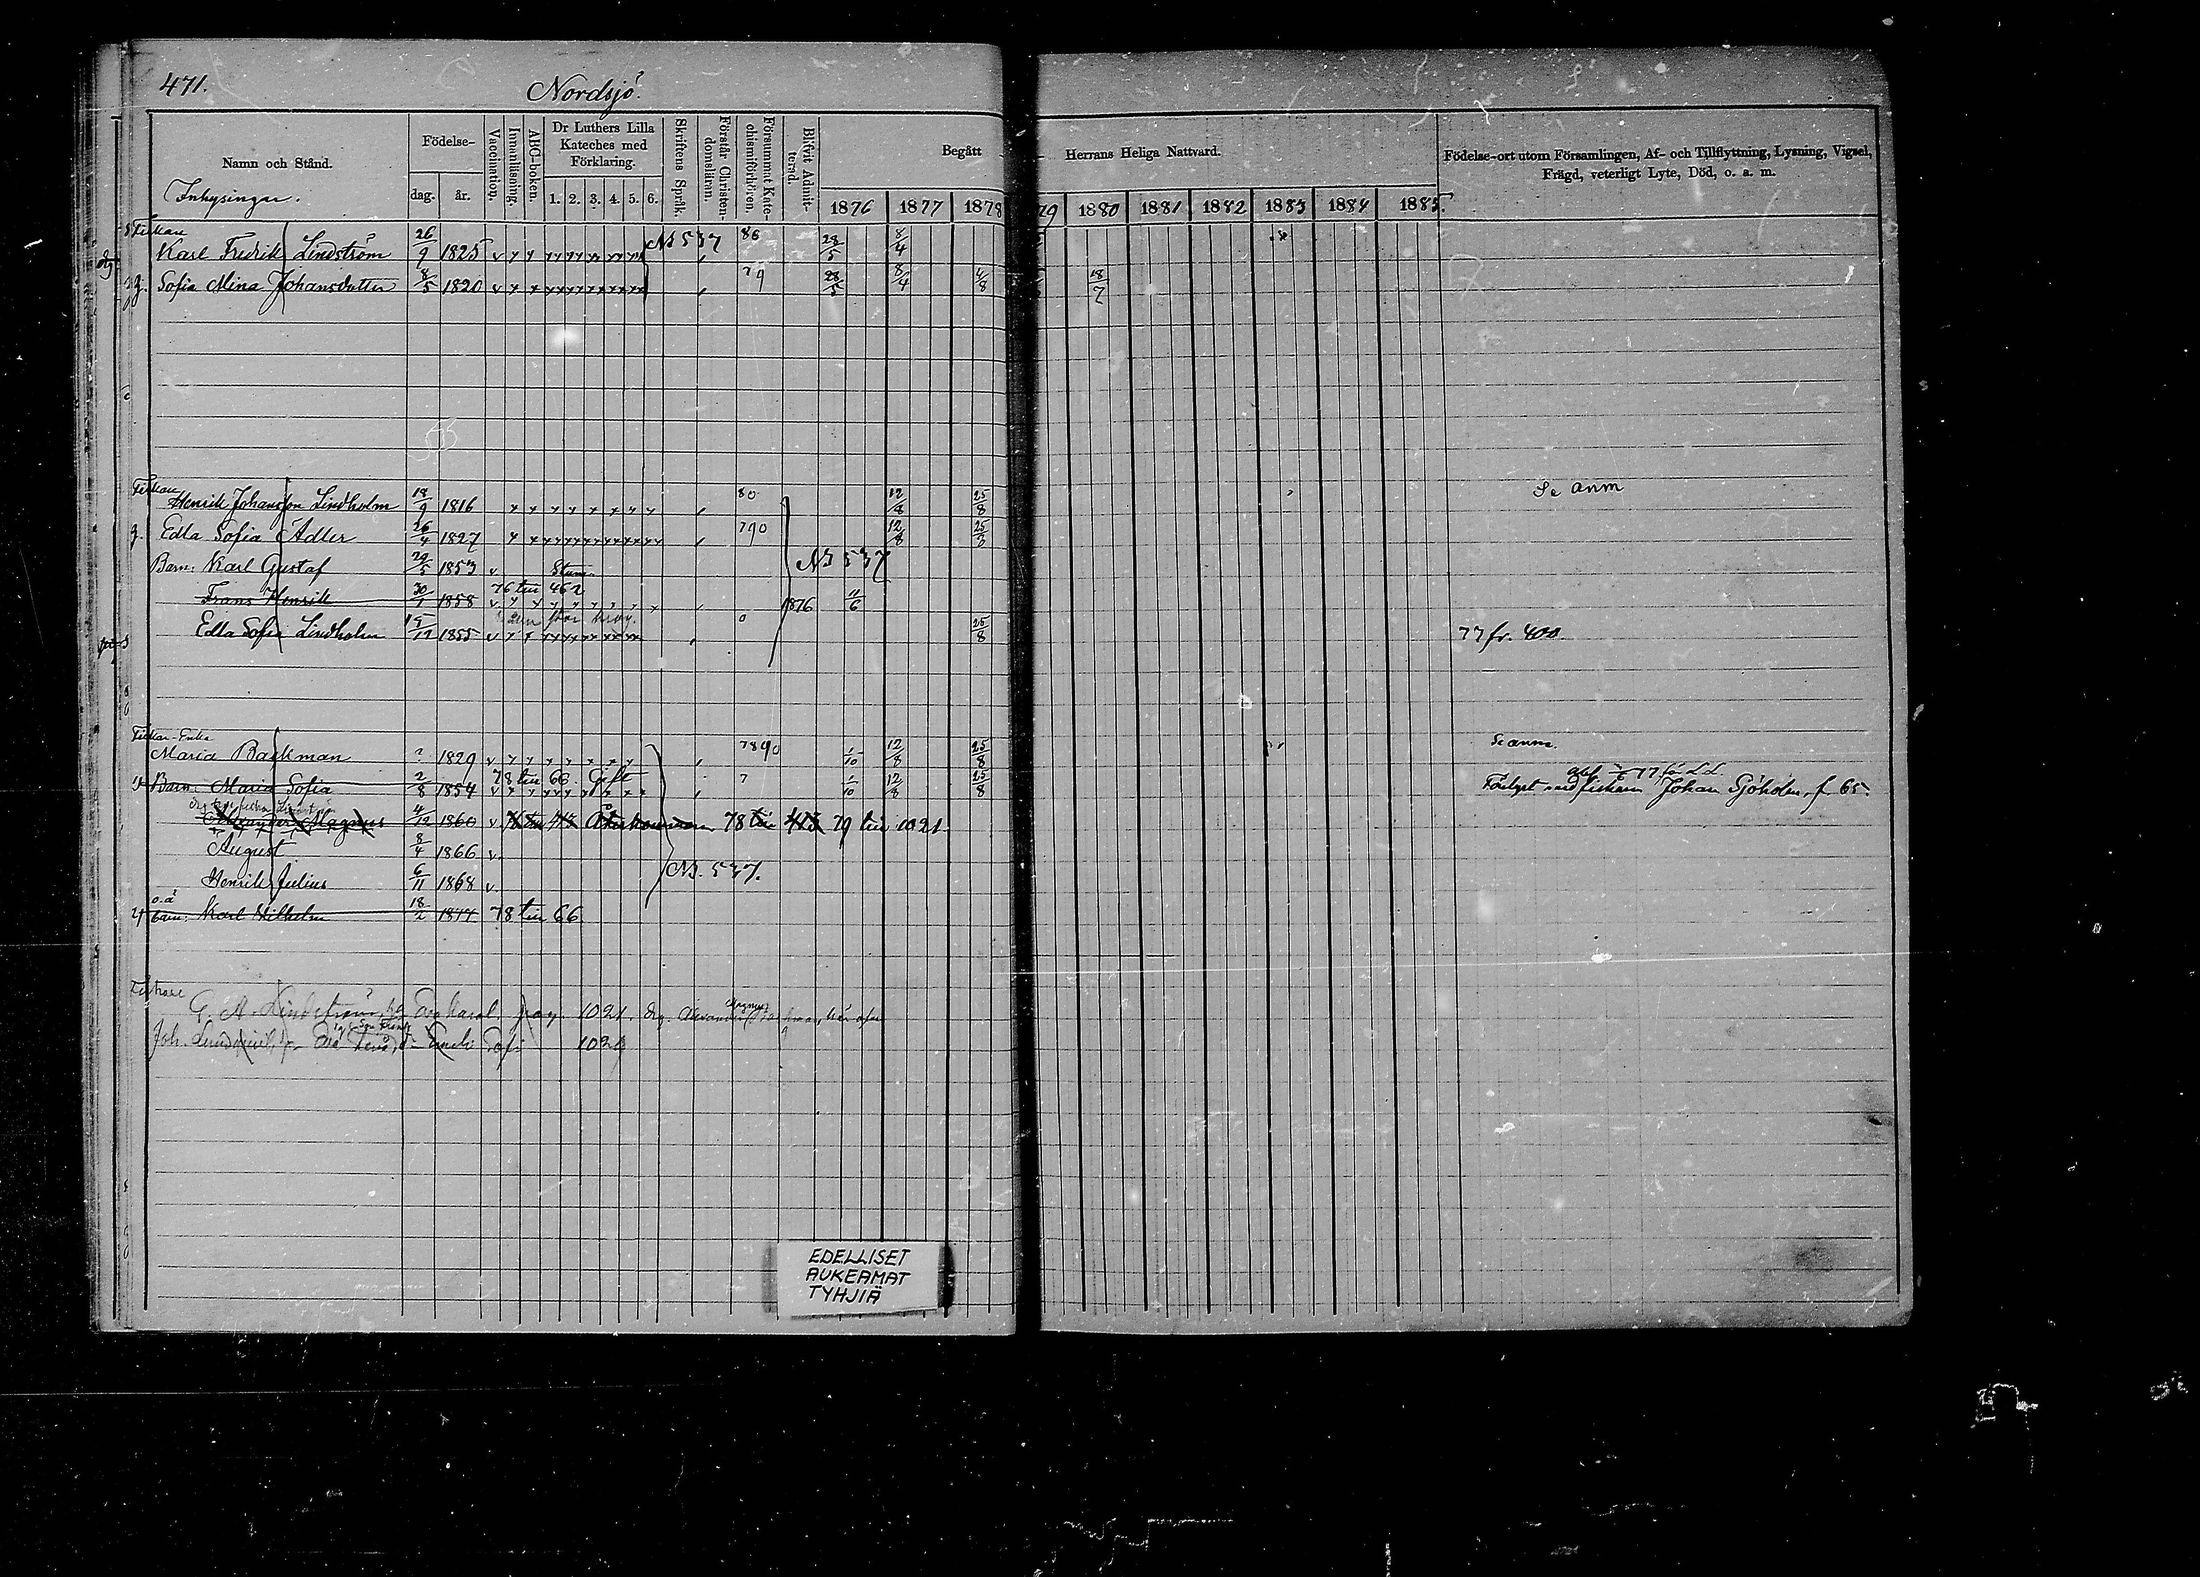 471.
Nordsjö.
Namn och Stånd.
Inhysingar.
Födelse-
dag. år.
Vaccination.
Innanläsning.
ABC-boken.
Dr Luthers Lilla Kateches med Förklaring.
1. 2. 3. 4. 5. 6.
Skriftens Språk.
Förstår Christendomsläran.
Försummat Katechismiförhören.
Blifvit Admitterad.
Begått Herrans Heliga Nattvard.
1876 1877 1878 79 1880 1881 1882 1883 1884 1885.
Födelse-ort utom Församlingen, Af- och Tillflyttning, Lysning, Vigsel, Frägd, veterligt Lyte, Död, o. a. m.
Fiskare
Karl Fredrik Lindström 26/9 1825 v NB 537 86 28/5 8/4
Sofia Mina Johansdotter 8/5 1820 v 79 28/5 8/4 4/8 18/7
Fiskare
Henrik Johansson Lindholm 18/9 1816 80 12/8 25/8 Se anm
Edla Sofia Adler 26/4 1827 790 12/8 25/8
Barn: Karl Gustaf 29/5 1853 v Stum NB 537
76 till 462
Frans Henrik 30/1 1858 v 1876 11/6
Edla Sofia Lindholm 15/12 1855 v 0 25/8 77 fr. 400.
Fiskar-Enka
Maria Backman ? 1829 v 7890 1/10 12/8 25/8 Se anm.
78 till 66. Gift
Barn: Maria Sofia 2/8 1854 v 7 1/10 12/8 25/8 Förlyst med fiskaren Johan Sjöholm, f 65.
Alexander Magnus 4/12 1860 v 78 till 413 79 till 1021
August 8/4 1866 v
Henrik Julius 6/11 1868 v NB. 537.
o.ä barn: Karl Wilhelm 18/2 1877 78 till 66
Fiskare
G. A. Lindström, pag. 1021
Joh. Lundqvist, 102
EDELLISET
AUKEAMAT
TYHJIÄ